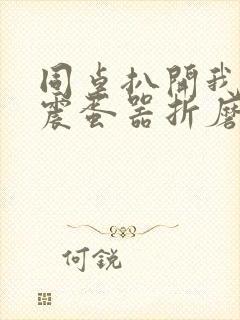 同桌扒開我
震蛋器折磨
何銳